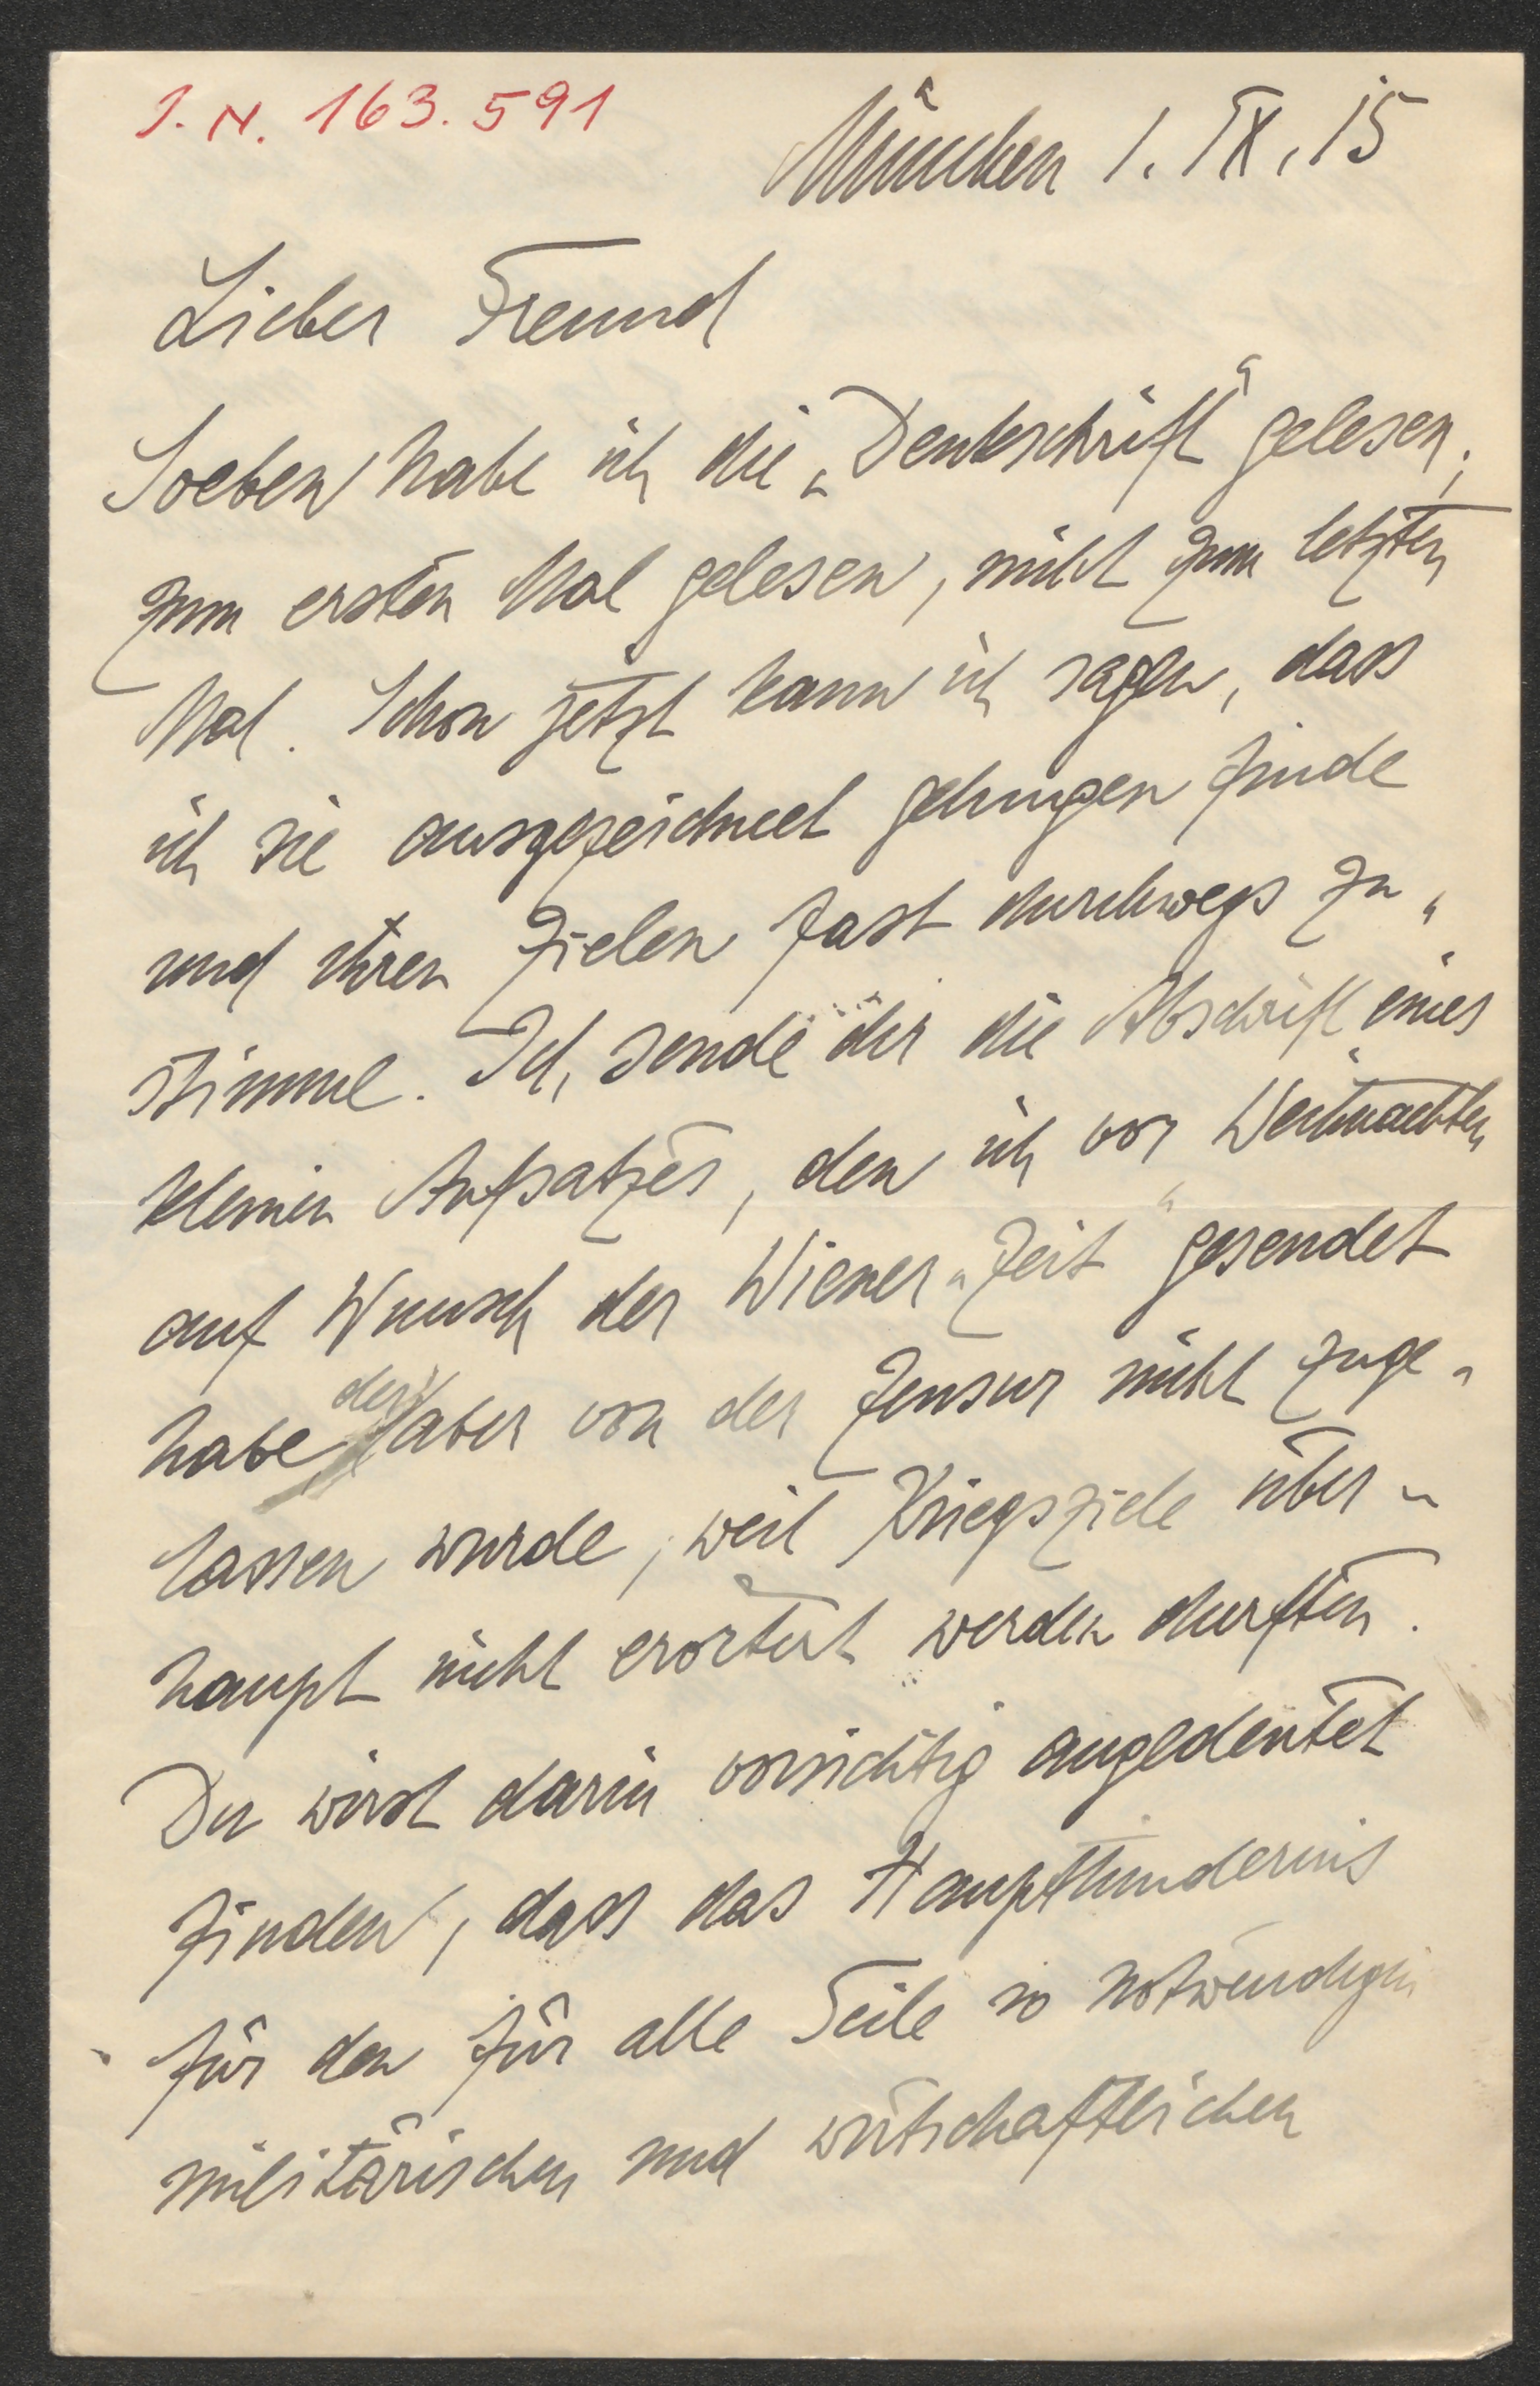 J. N. 163.591
München 1. IX. 15
Lieber Freund
Soeben habe ich die „Denkschrift“ gelesen;
zum ersten Mal gelesen, nicht zum letzten
Mal. Schon jetzt kann ich sagen, dass
ich sie ausgezeichnet gelungen finde
und ihren Zielen fast durchwegs zu-
stimme. Ich sende dir die Abschrift eines
kleinen Aufsatzes, den ich vor Weihnachten
auf Wunsch der Wiener „Zeit“ gesendet
habe der aber von der Zensur nicht zuge-
lassen wurde, weil Kriegsziele über-
haupt nicht erörtert werden durften.
Du wirst darin vorsichtig angedeutet
finden, dass das Haupthindernis
für den für alle Teile so notwendigen
militärischen und wirtschaftlichen